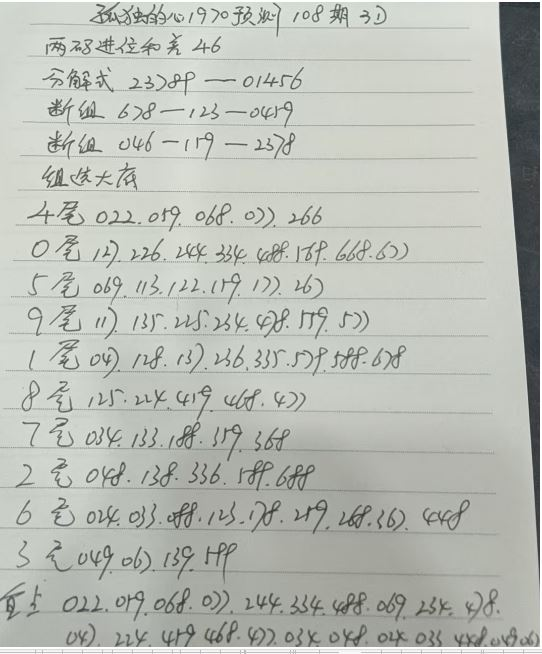 孤独的心1970预测108期3D
两码进位和差46
分解式 23789—01456
断组 678—123—0459
断组 046—159—2378
组选大底
4尾 022.059.068.077.266
0尾 127.226.244.334.488.569.668.677
5尾 069.113.122.159.177.267
9尾 117.135.225.234.478.559.577
1尾 047.128.137.236.335.579.588.678
8尾 125.224.459.468.477
7尾 034.133.188.359.368
2尾 048.138.336.589.688
6尾 024.033.088.123.178.259.268.367.448
3尾 049.067.139.599
重点 022.059.068.077.244.334.488.069.234.478.
047.224.459.468.477.034.048.024.033.448.049.067